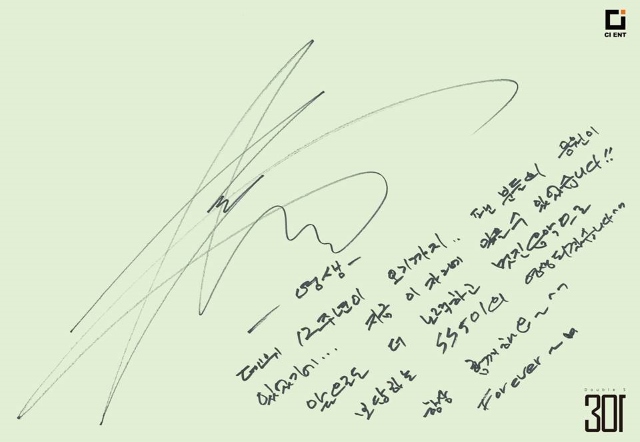 CI ENT
- 영생 -
데뷔 12주년이 오기까지.. 팬 분들의 응원이
있었기에... 지금 이 자리에 있을 수 있었습니다!!
앞으로도 더 노력하고 멋진
보답하는 SS501의 영생되겠습니다~~
항상 함께해요~~^^
Forever~♥
Double S
301